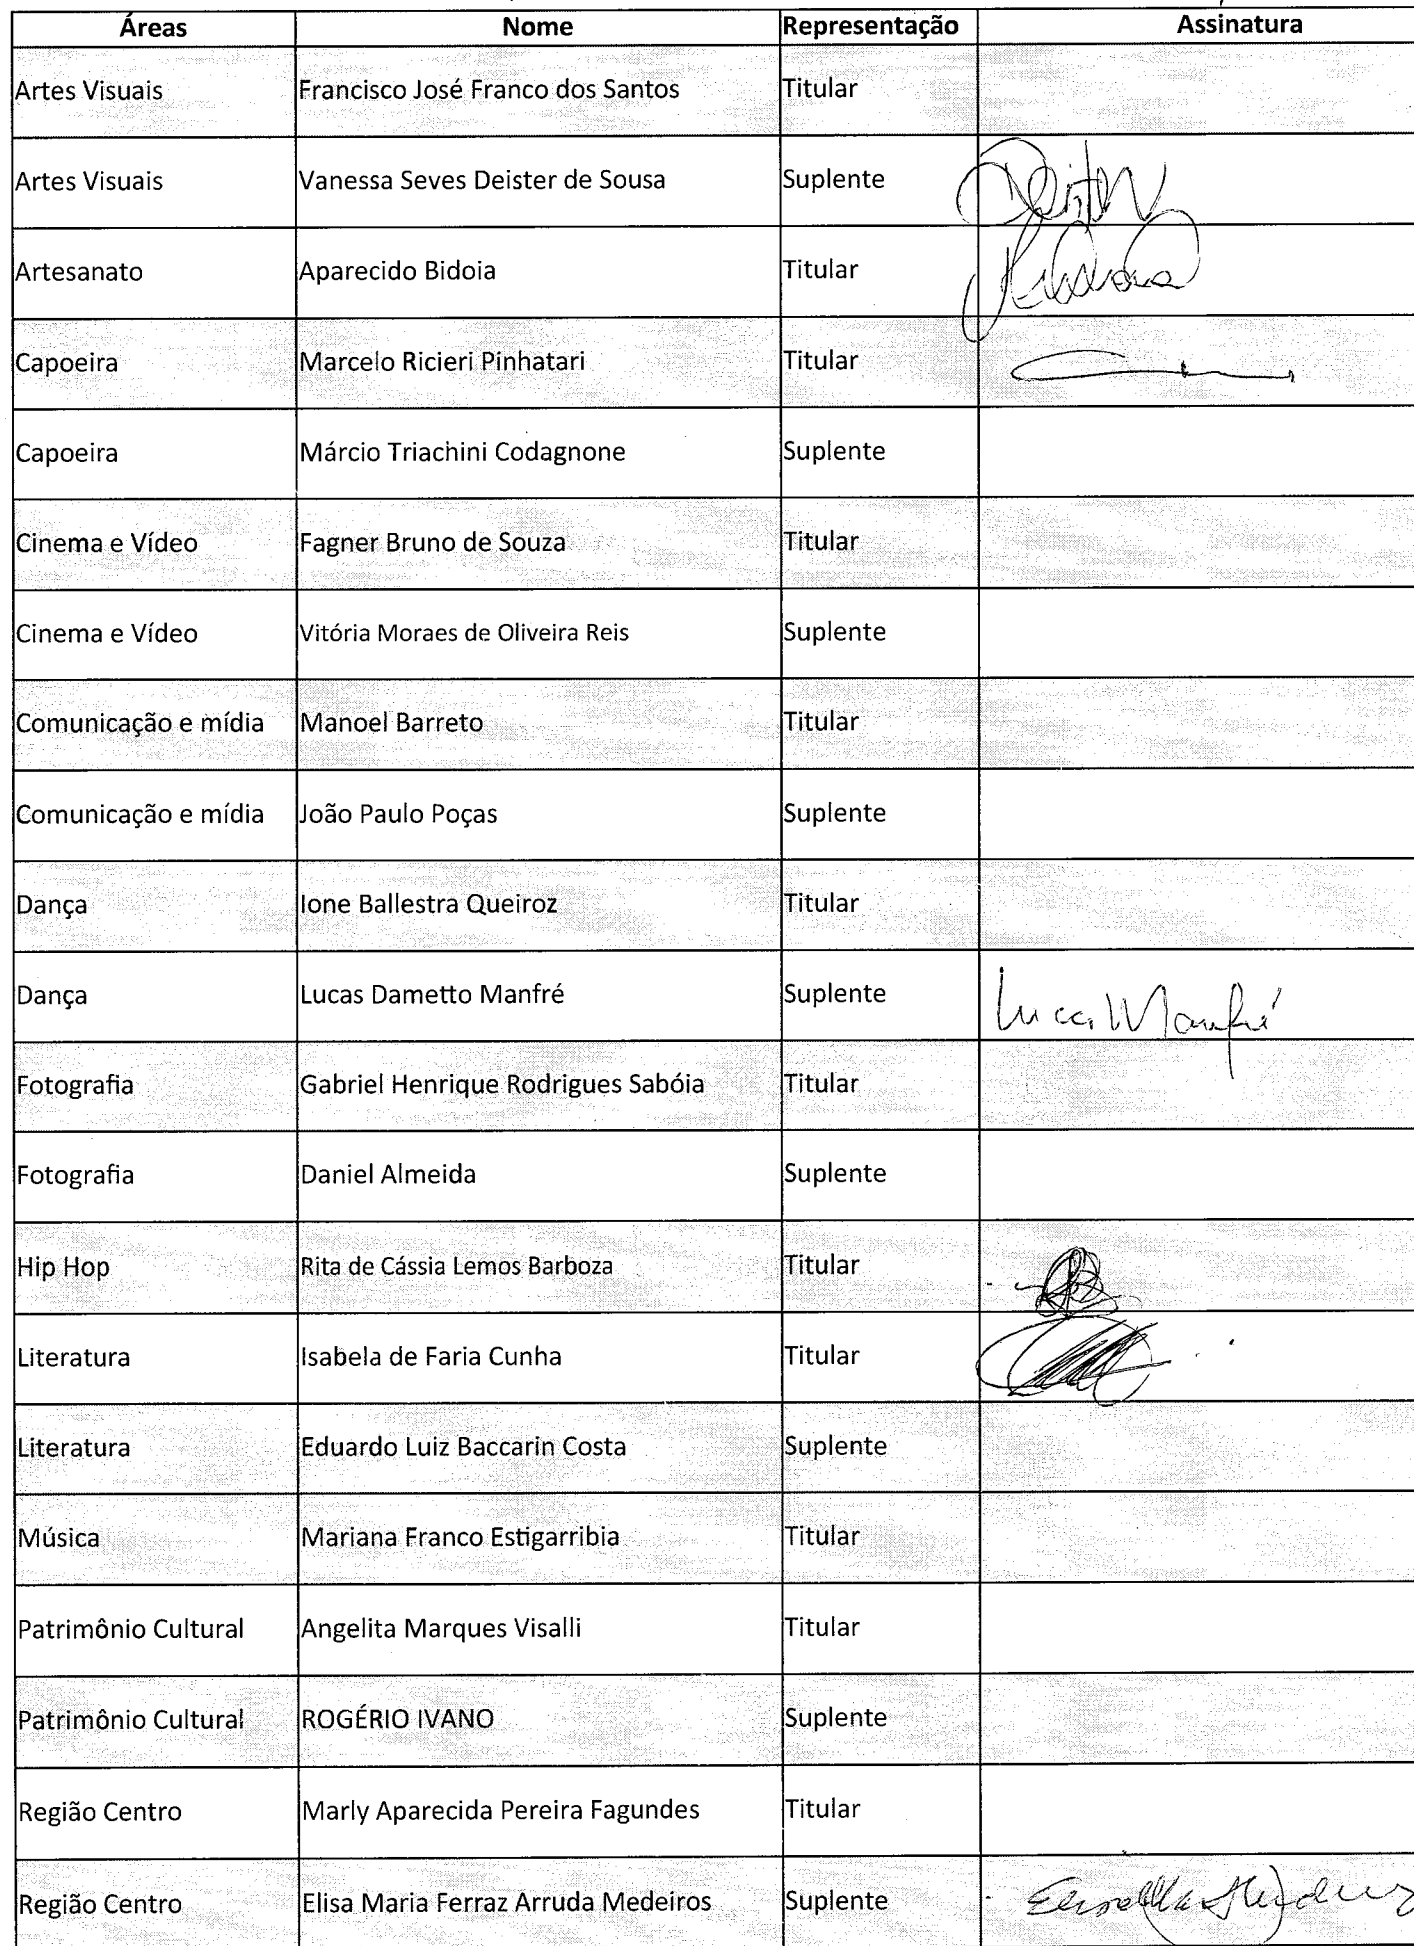 Áreas Nome Representação Assinatura
Artes Visuais Francisco José Franco dos Santos Titular
Artes Visuais Vanessa Seves Deister de Sousa Suplente Deister
Artesanato Aparecido Bidoia Titular
Capoeira Marcelo Ricieri Pinhatari Titular
Capoeira Márcio Triachini Codagnone Suplente
Cinema e Vídeo Fagner Bruno de Souza Titular
Cinema e Vídeo Vitória Moraes de Oliveira Reis Suplente
Comunicação e mídia Manoel Barreto Titular
Comunicação e mídia João Paulo Poças Suplente
Dança Ione Ballestra Queiroz Titular
Dança Lucas Dametto Manfré Suplente Lucas Manfré
Fotografia Gabriel Henrique Rodrigues Sabóia Titular
Fotografia Daniel Almeida Suplente
Hip Hop Rita de Cássia Lemos Barboza Titular
Literatura Isabela de Faria Cunha Titular
Literatura Eduardo Luiz Baccarin Costa Suplente
Música Mariana Franco Estigarribia Titular
Patrimônio Cultural Angelita Marques Visalli Titular
Patrimônio Cultural ROGÉRIO IVANO Suplente
Região Centro Marly Aparecida Pereira Fagundes Titular
Região Centro Elisa Maria Ferraz Arruda Medeiros Suplente